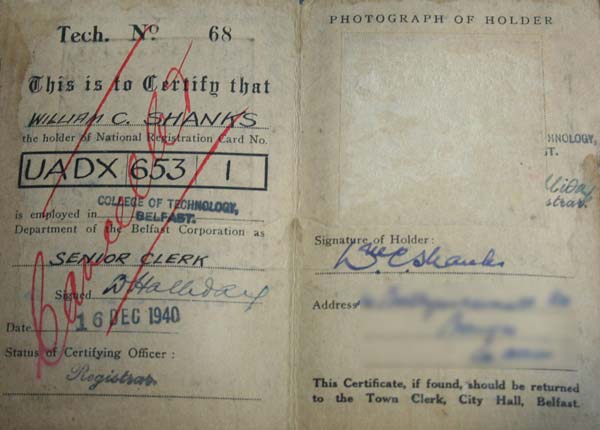 Tech. No 68
This is to Certify that
WILLIAM C. SHANKS
the holder of National Registration Card No.
UADX 653 1
COLLEGE OF TECHNOLOGY,
is employed in BELFAST.
Department of the Belfast Corporation as
SENIOR CLERK
Signed D Halliday
Date 16 DEC 1940
Status of Certifying Officer :
Registrar
Cancelled
PHOTOGRAPH OF HOLDER
HNOLOGY,
ST.
lliday
strar.
Signature of Holder :
Wm C Shanks
Address
This Certificate, if found, should be returned
to the Town Clerk, City Hall, Belfast.